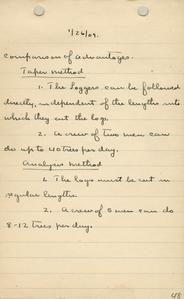 1/26/09.
Comparison of advantages.
Taper method
1. The loggers can be followed
directly, independent of the lengths into
which they cut the logs.
2. A crew of two men can
do up to 40 trees per day.
Analysis method
1. The logs must be cut in
regular lengths.
2. A crew of 5 men can do
8-12 trees per day.
48